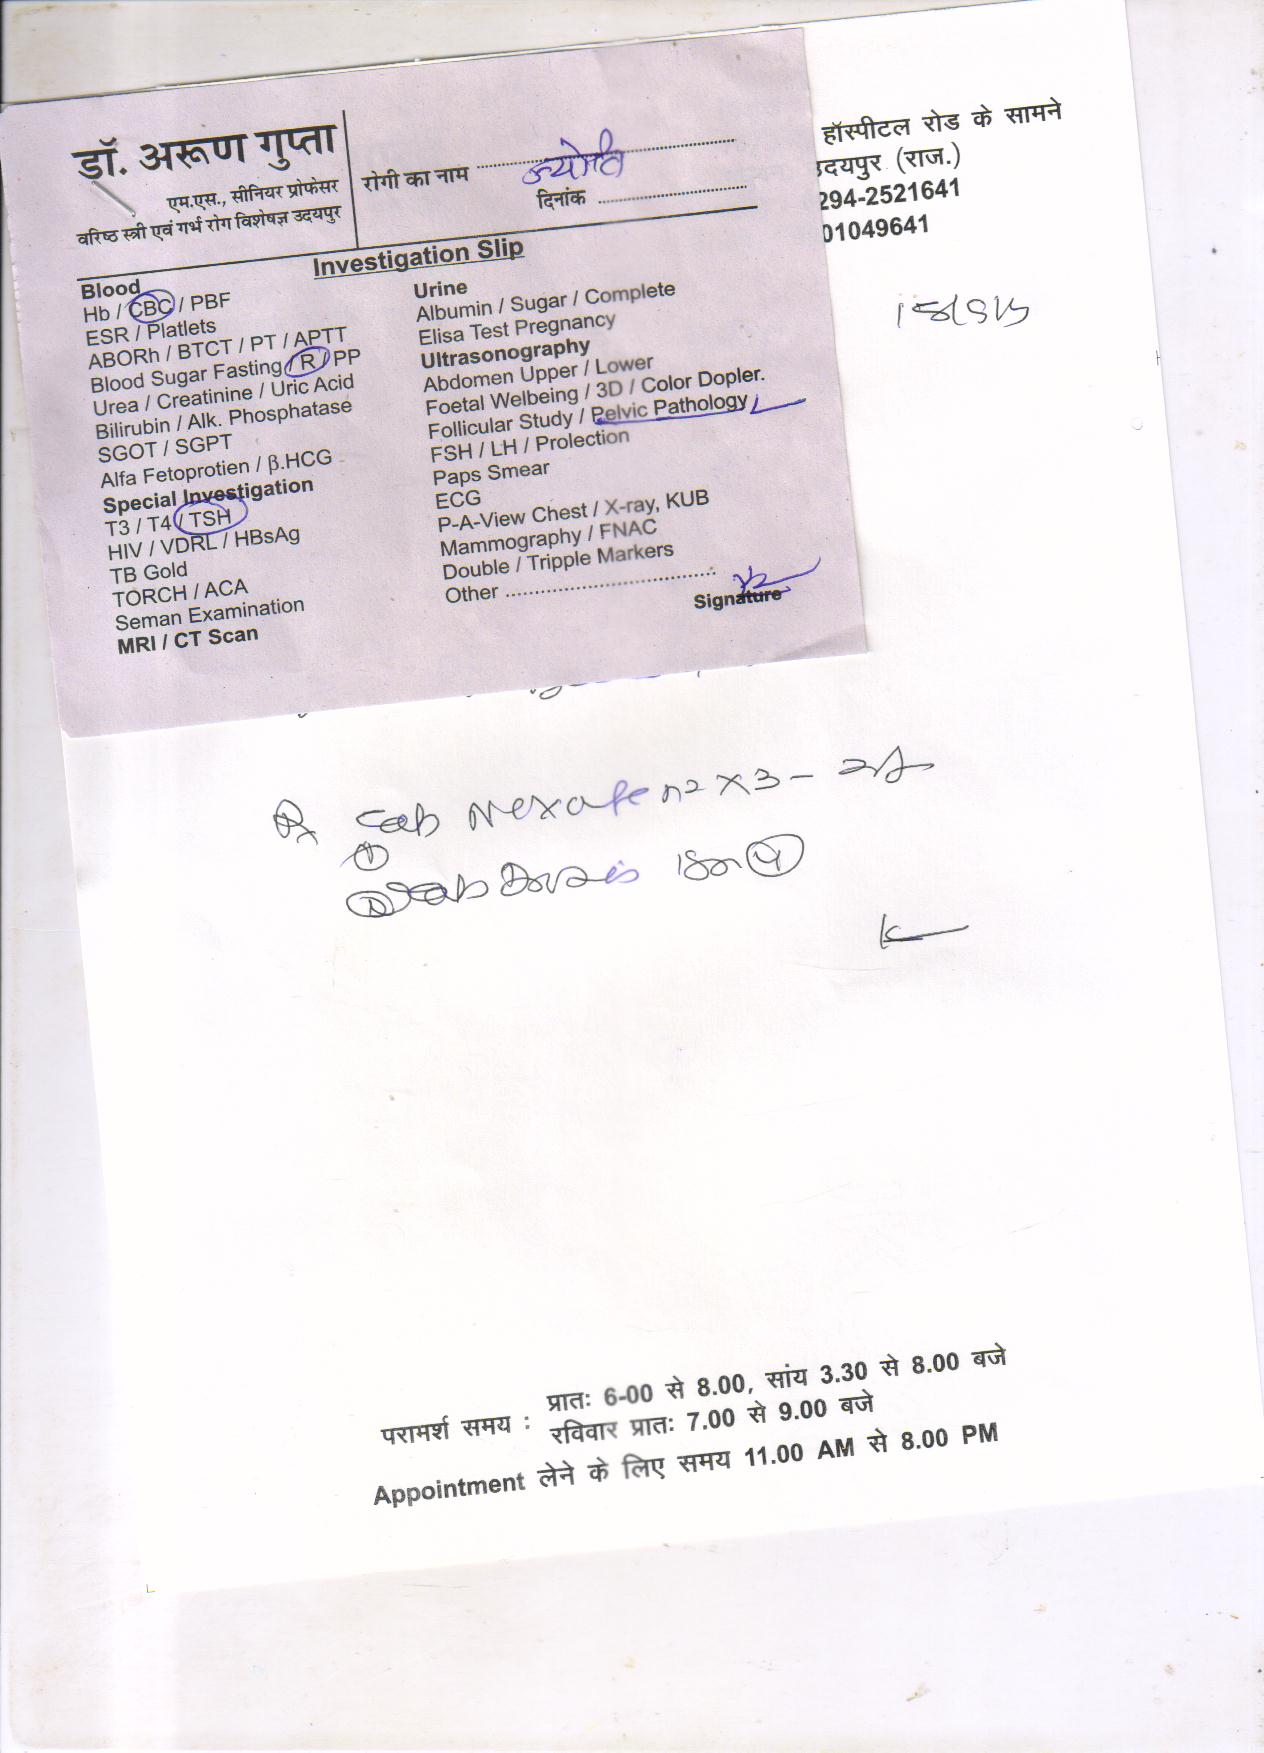 डॉ. अरूण गुप्ता
एम.एस., सीनियर प्रोफेसर
वरिष्ठ स्त्री एवं गर्भ रोग विशेषज्ञ उदयपुर
रोगी का नाम ज्योति
दिनांक
हॉस्पीटल रोड के सामने
उदयपुर (राज.)
294-2521641
01049641
Investigation Slip
Blood
Hb / CBC / PBF
ESR / Platlets
ABORh / BTCT / PT / APTT
Blood Sugar Fasting / R / PP
Urea / Creatinine / Uric Acid
Bilirubin / Alk. Phosphatase
SGOT / SGPT
Alfa Fetoprotien / β.HCG
Special Investigation
T3 / T4 / TSH
HIV / VDRL / HBsAg
TB Gold
TORCH / ACA
Seman Examination
MRI / CT Scan
Urine
Albumin / Sugar / Complete
Elisa Test Pregnancy
Ultrasonography
Abdomen Upper / Lower
Foetal Welbeing / 3D / Color Dopler.
Follicular Study / Pelvic Pathology
FSH / LH / Prolection
Paps Smear
ECG
P-A-View Chest / X-ray, KUB
Mammography / FNAC
Double / Tripple Markers
Other
Signature
परामर्श समय : प्रातः 6-00 से 8.00, सांय 3.30 से 8.00 बजे
रविवार प्रातः 7.00 से 9.00 बजे
Appointment लेने के लिए समय 11.00 AM से 8.00 PM